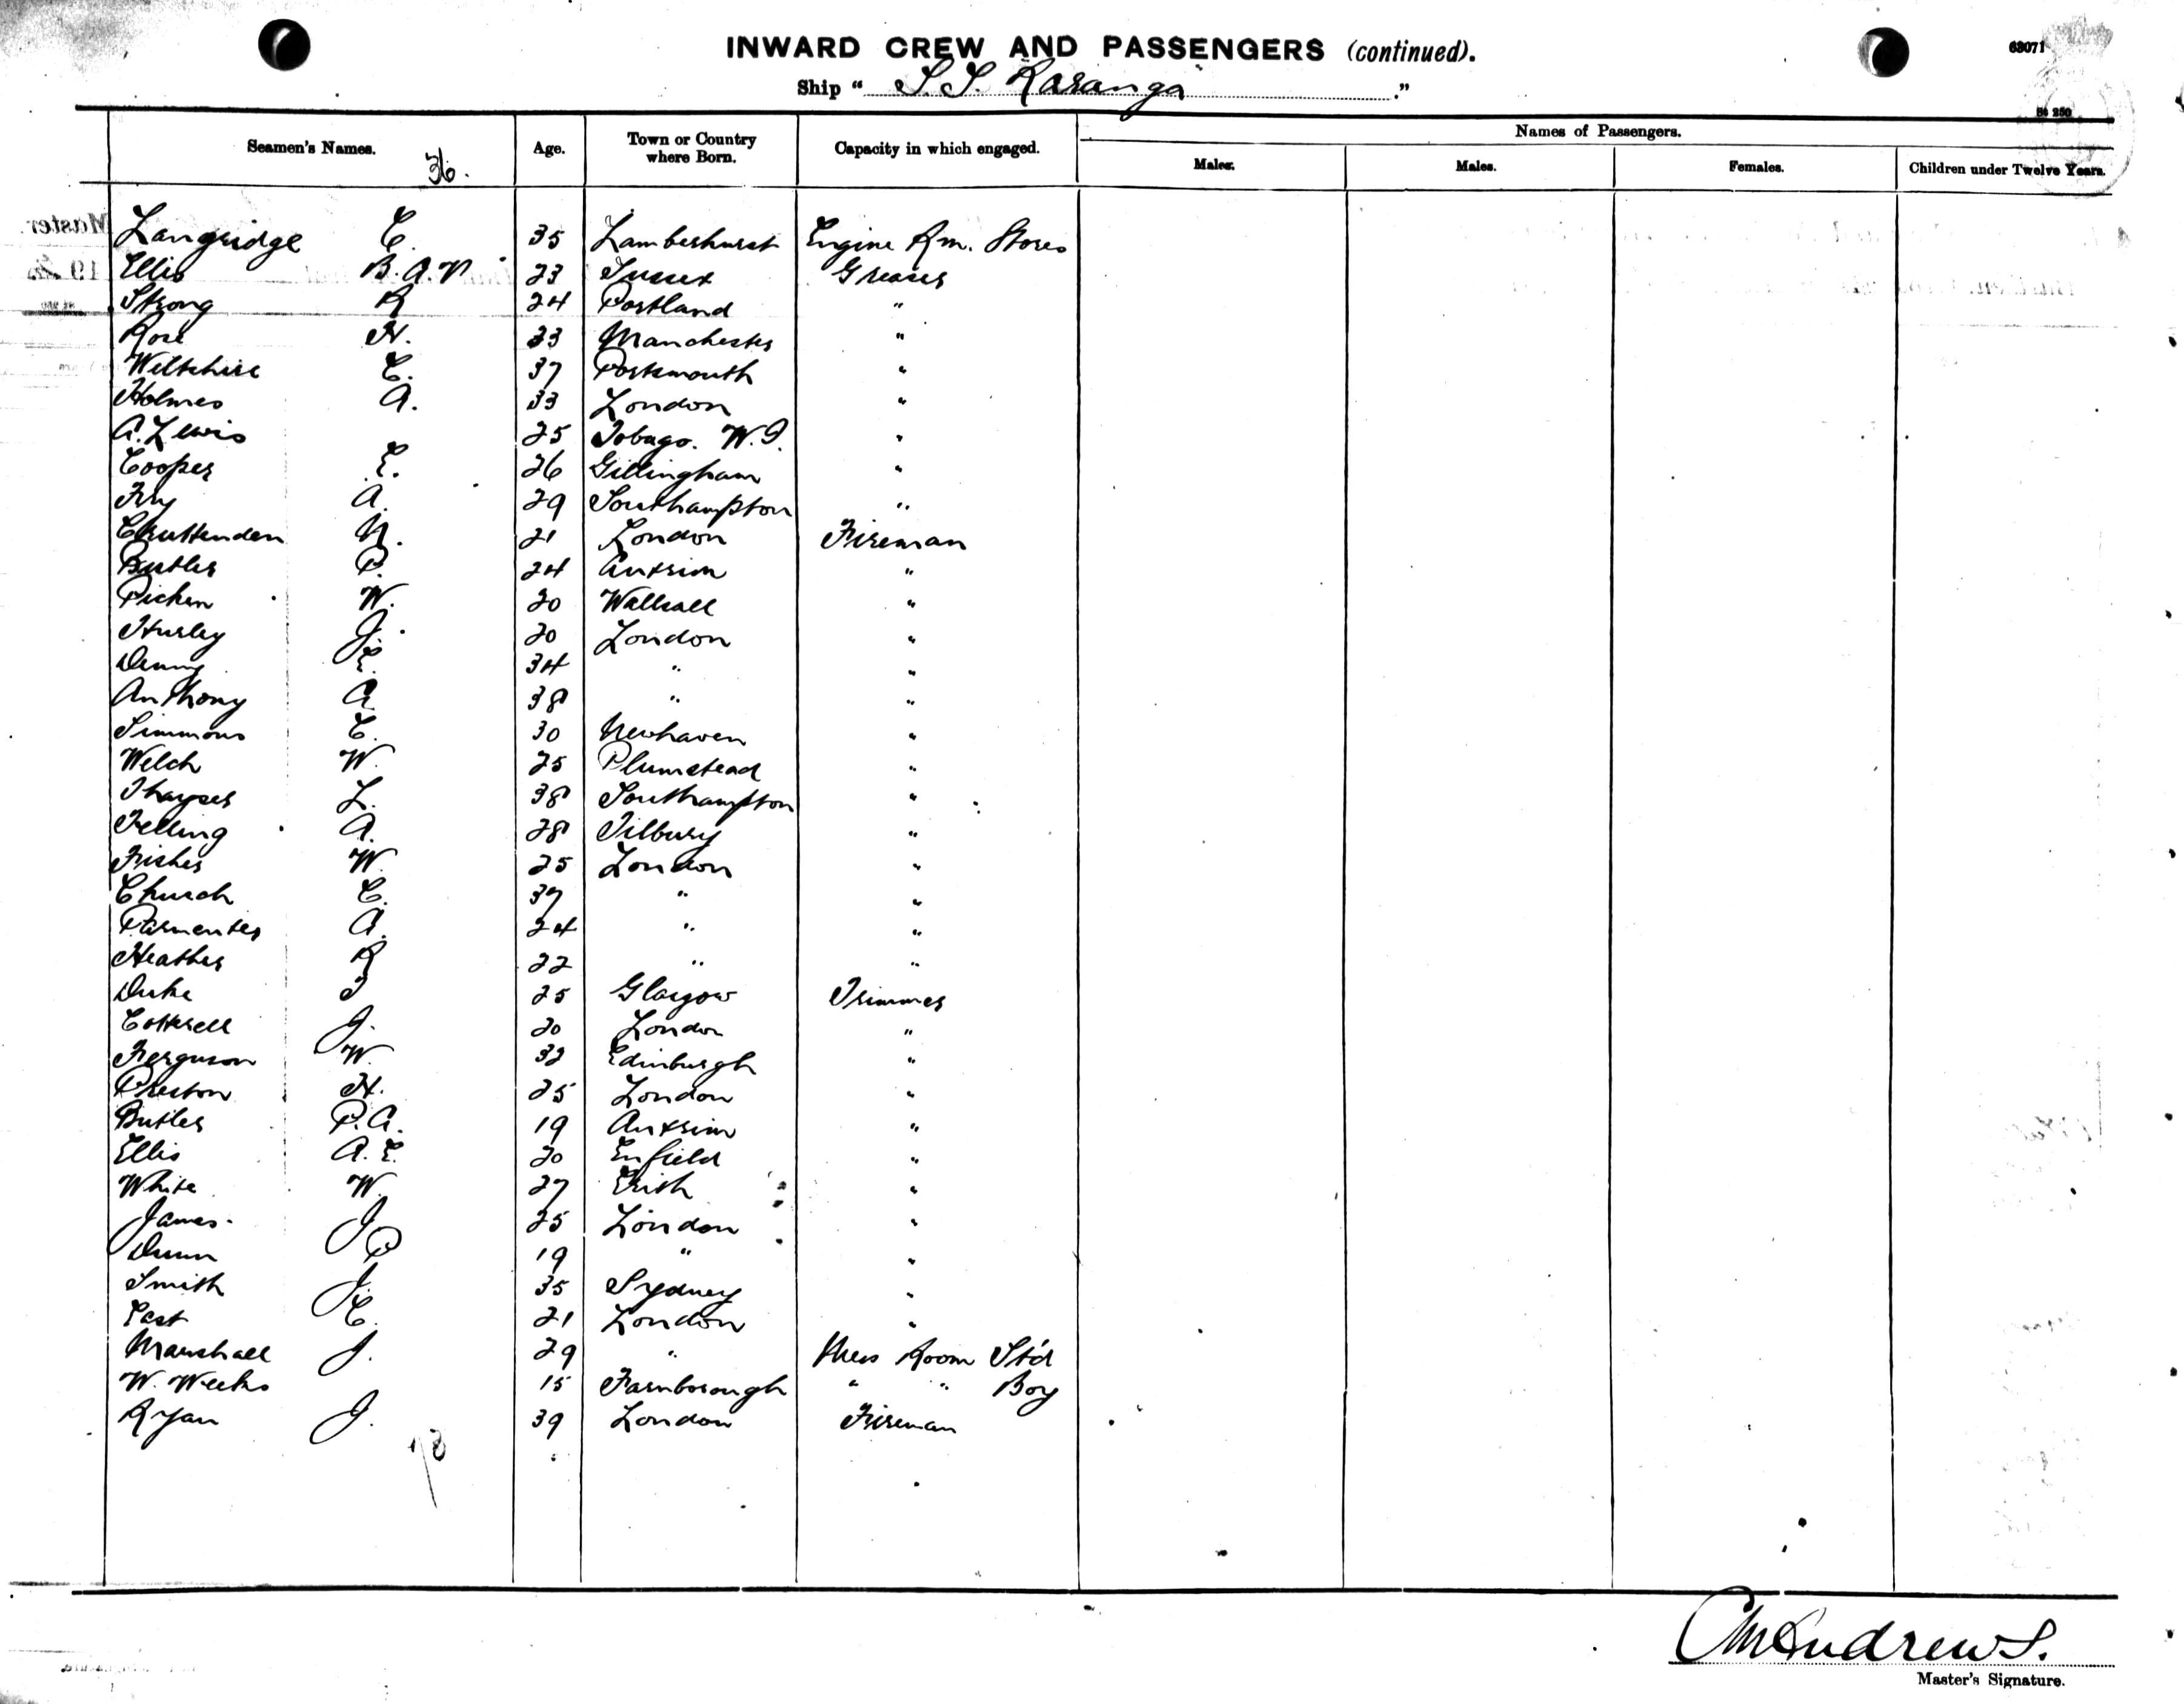 INWARD CREW AND PASSENGERS (continued).
63071
Ship " S.S. Karanga "
Seamen's Names. Age. Town or Country where Born. Capacity in which engaged. Names of Passengers.
36.
Males. Males. Females. Children under Twelve Years.
Langridge E. 35 Lamberhurst Engine Rm. Stores
Ellis B.A.V 23 Sussex Greaser
Strong R 24 Portland "
Rose H. 33 Manchester "
Wiltshire E. 37 Portsmouth "
Holmes A. 33 London "
A. Lewis 25 Tobago. W.I. "
Cooper E. 26 Gillingham "
Fry A. 29 Southampton "
Chuttenden N. 21 London Fireman
Butler P. 24 Antrim "
Picken W. 20 Wallsall "
Hurley J. 20 London "
Denny E. 34 " "
Anthony A 38 " "
Simmons C. 30 Newhaven "
Welch W. 25 Plumstead "
Thayser L. 38 Southampton "
Felling A. 28 Tilbury "
Fisher W. 25 London "
Church C. 37 " "
Parmenter A. 24 " "
Heather R 22 " "
Duke T 25 Glasgow Trimmer
Cottrell J. 20 London "
Ferguson W. 32 Edinburgh "
Preston H. 25 London "
Butler P.A. 19 Antrim "
Ellis A.E. 20 Enfield "
White W. 27 Erith "
James J 25 London "
Dunn P 19 " "
Smith J. 35 Sydney "
East C. 21 London "
Marshall J. 29 " Mess Room Std
W. Weeks 15 Farnborough " " Boy
Ryan J. 39 London Fireman
C McAndrews.
Master's Signature.